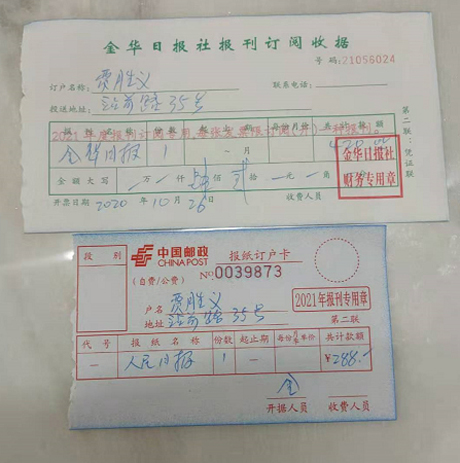 金华日报社报刊订阅收据
号码:21056024
订户名称: 贾胜义 联系电话:
投送地址: 站前路35号
2021年度报刊订阅专用,每张发票限订阅(第)一种报刊。
金华日报 1 一 月 420.00
金额大写 万 仟 肆 佰 贰 拾 元 角
开票日期 2020 年 10 月 26 日 收费人员
金华日报社
财务专用章
第二联:凭证联
段 别
中国邮政
CHINA POST
报纸订户卡
(自费/公费) No 0039873
户名 贾胜义
地址 站前路35号
2021年报刊专用章
第二联
代号 报纸名称 份数 起止期 每份月单价 共计款额
一 人民日报 1 一 ¥288.-
金
开据人员 收费人员